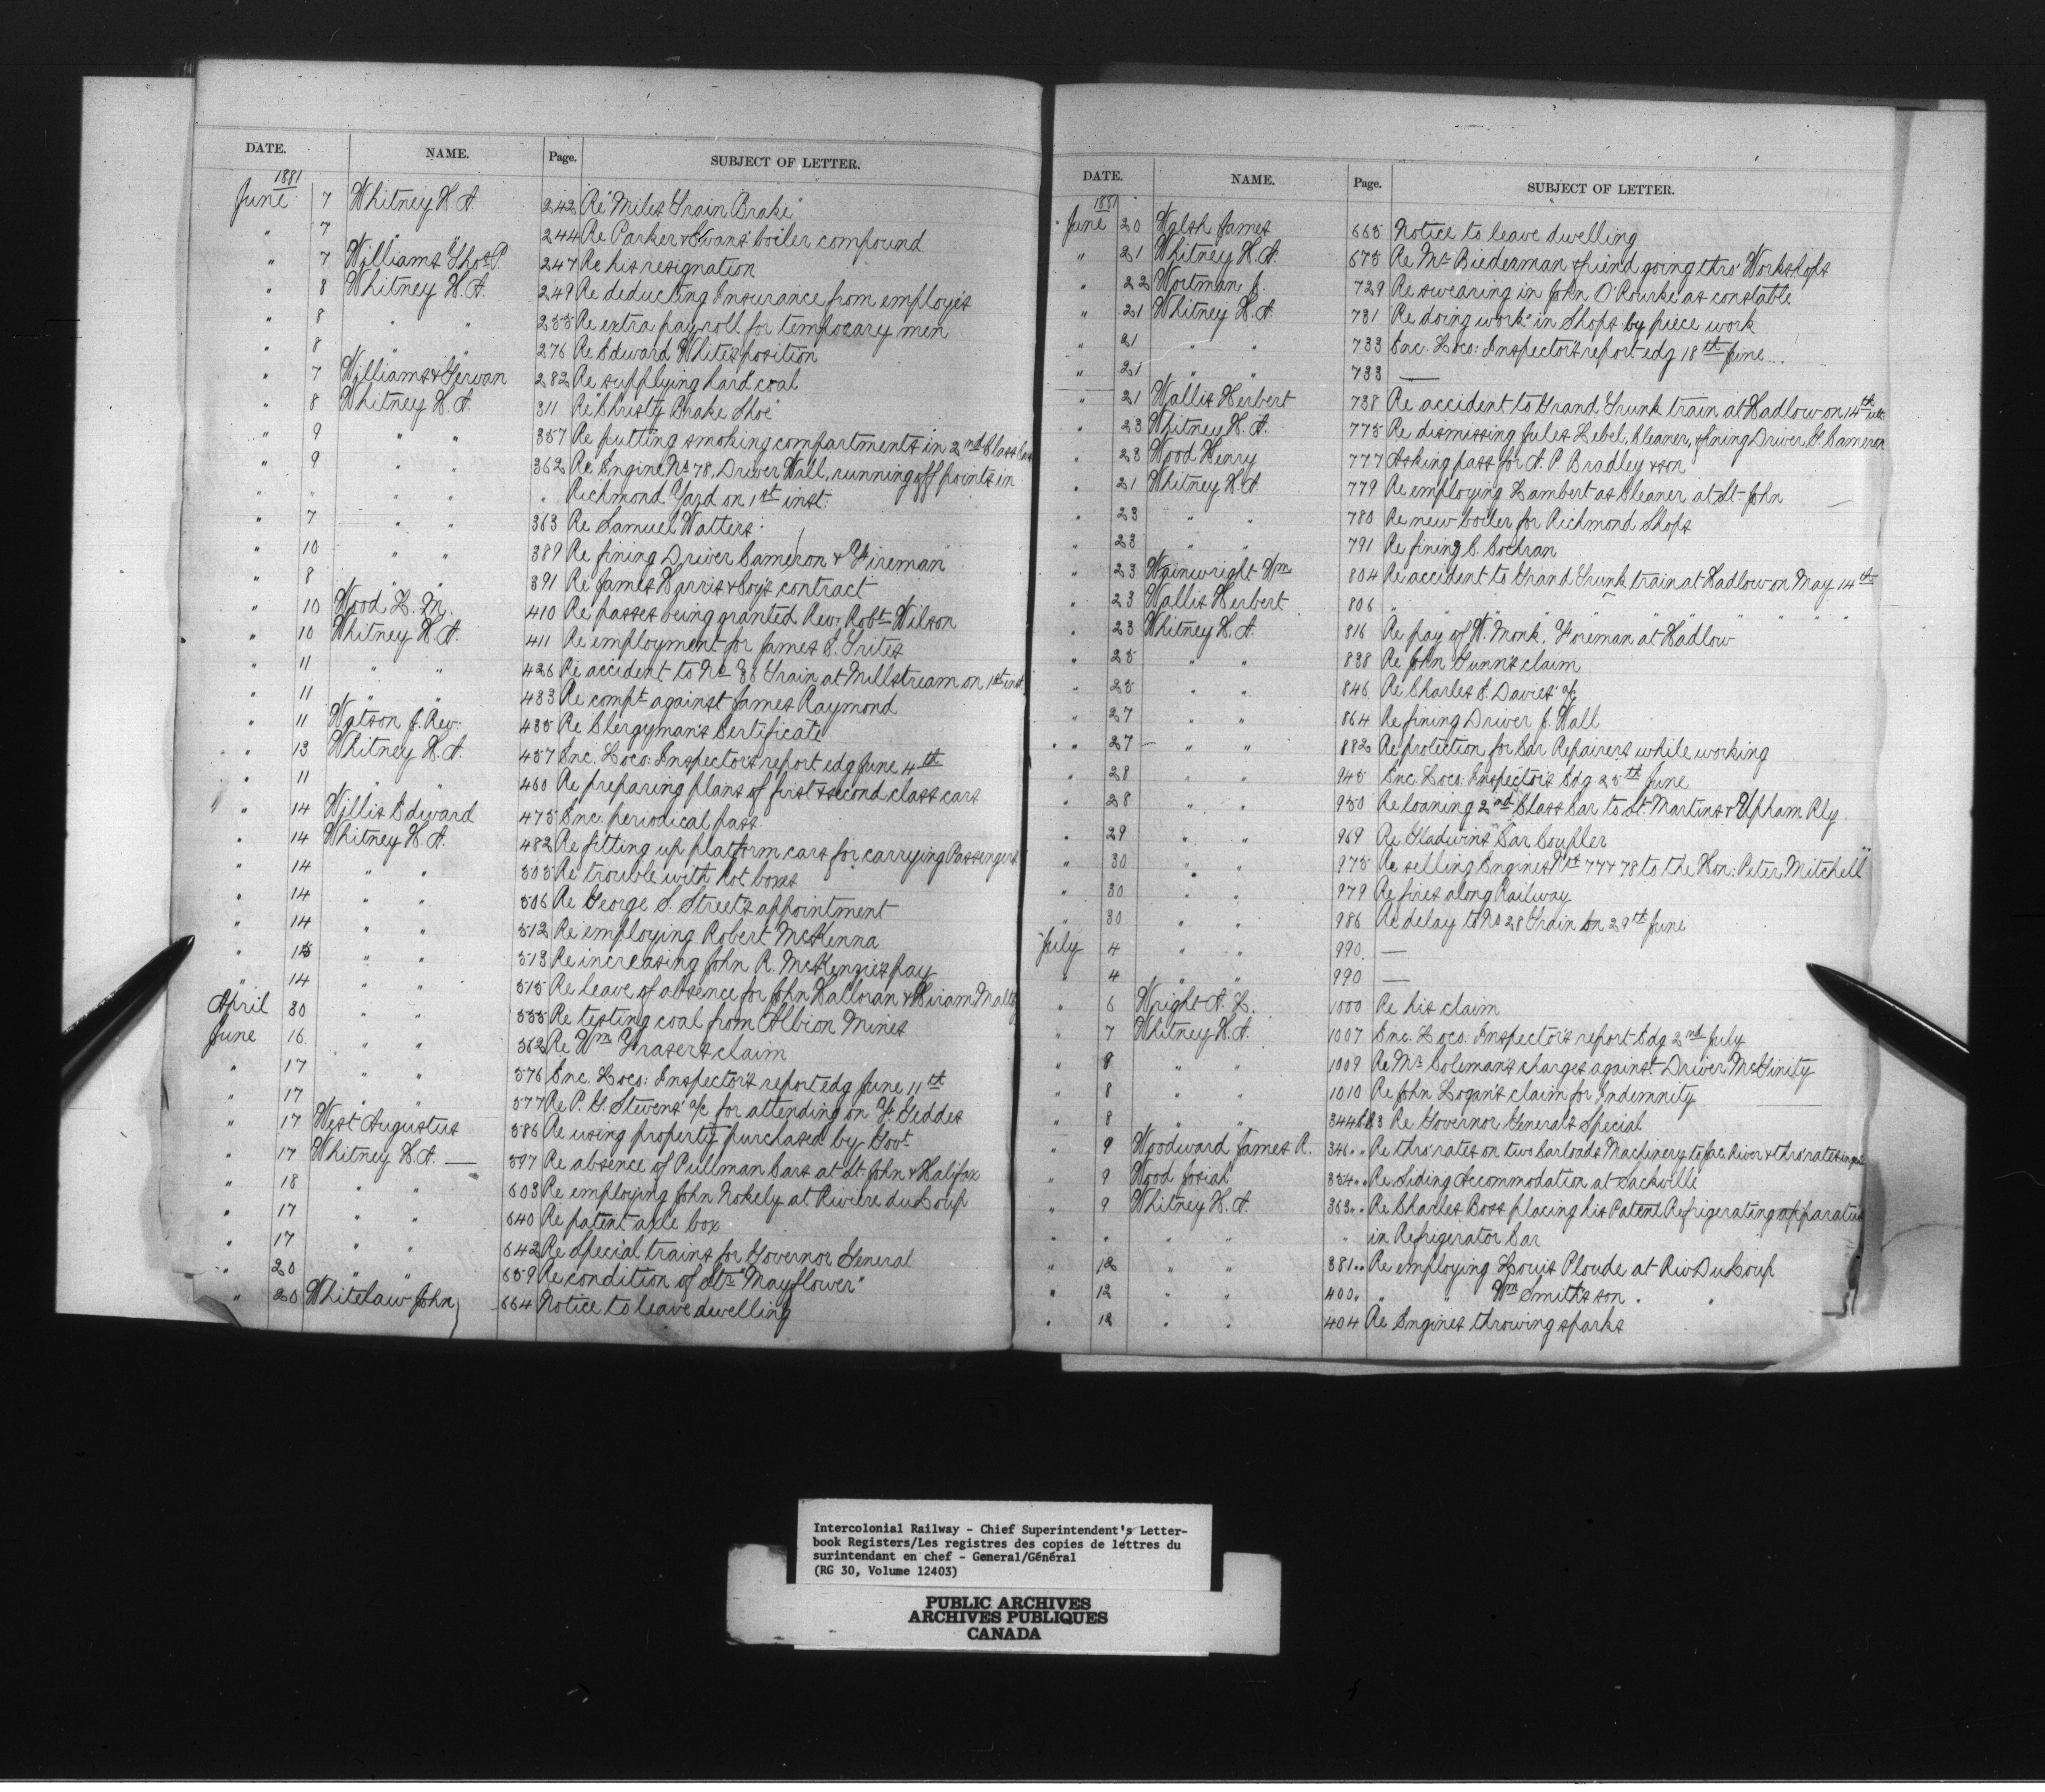 DATE. NAME. Page. SUBJECT OF LETTER.
1881
June 7 Whitney H. A. 242 Re "Miles Train Brake"
" 7 " " 244 Re Parker & Evans' boiler compound
" 7 Williams Thos. P. 247 Re his resignation
" 8 Whitney H. A. 249 Re deducting Insurance from employés
" 8 " " 255 Re extra pay roll for temporary men
" 8 " " 276 Re Edward White's position
" 7 Williams & 282 Re supplying hard coal
" 8 Whitney H. A. 311 Re "Christy Brake Shoe"
" 9 " " 357 Re putting smoking compartments in 2nd Class Cars
" 9 " " 362 Re Engine No 78, Driver Wall, running off points in
" " " " " Richmond Yard on 1st inst.
" 7 " " 363 Re Samuel Watters
" 10 " " 389 Re fining Driver Cameron & Fireman
" 8 " " 391 Re James Harris & Coy's contract
" 10 Wood L. M. 410 Re passes being granted Rev. Robt Wilson
" 10 Whitney H. A. 411 Re employment for James S. Trites
" 11 " " 426 Re accident to No 38 Train at Millstream on 1st inst.
" 11 " " 433 Re compt against James Raymond
" 11 Watson J. Rev. 435 Re Clergyman's Certificate
" 13 Whitney H. A. 457 Enc. Loco: Inspector's report edg June 4th
" 11 " " 460 Re preparing plans of first & second class cars
" 14 Willis Edward 475 Enc. periodical pass
" 14 Whitney H. A. 482 Re fitting up platform cars for carrying Passengers
" 14 " " 503 Re trouble with hot boxes
" 14 " " 506 Re George S. Street's appointment
" 14 " " 512 Re employing Robert McKenna
" 15 " " 513 Re increasing John R. McKenzie's pay
" 14 " " 515 Re leave of absence for John Halloran & Hiram
April 30 " " 555 Re testing coal from Albion Mines
June 16 " " 562 Re Wm Fraser's claim
" 17 " " 576 Enc. Loco: Inspector's report edg June 11th
" 17 " " 577 Re P. G. Stevens' a/c for attending on F. Geddes
" 17 West Augustus 586 Re using property purchased by Govt
" 17 Whitney H. A. — 597 Re absence of Pullman Cars at St. John & Halifax
" 18 " " 603 Re employing John Nokely at Riviere du Loup
" 17 " " 640 Re patent axle box
" 17 " " 642 Re special trains for Governor General
" 20 " " 659 Re condition of Str "Mayflower"
" 20 Whitelaw John 664 Notice to leave dwelling
DATE. NAME. Page. SUBJECT OF LETTER.
1881
June 20 Walsh James 665 Notice to leave dwelling
" 21 Whitney H. A. 675 Re Mr Biederman & friend going thro' Workshops
" 22 Wortman J. 729 Re swearing in John O'Rourke as constable
" 21 Whitney H. A. 731 Re doing work in Shops by piece work
" 21 " " 733 Enc. Loco: Inspector's report edg 18th June
" 21 " " 733 —
" 21 Wallis Herbert 738 Re accident to Grand Trunk train at Hadlow on 14th ult
" 23 Whitney H. A. 775 Re dismissing Jules Lebel, Cleaner, & fining Driver G. Cameron
" 23 Wood Henry 777 Asking pass for A. P. Bradley & son
" 21 Whitney H. A. 779 Re employing Lambert as Cleaner at St-John
" 23 " " 780 Re new boiler for Richmond Shops
" 23 " " 791 Re fining C. Cochran
" 23 Wainwright Wm 804 Re accident to Grand Trunk train at Hadlow on May 14th
" 23 Wallis Herbert 806 " " " " " " " " "
" 23 Whitney H. A. 816 Re pay of W. Monk, Foreman at Hadlow
" 25 " " 838 Re John Gunn's claim
" 25 " " 846 Re Charles J. Davies' a/c
" 27 " " 864 Re fining Driver J. Wall
" 27 — " " 882 Re protection for Car Repairers while working
" 28 " " 945 Enc. Loco: Inspector's Edg 25th June
" 28 " " 950 Re loaning 2nd Class Car to St. Martins & Upham Rly
" 29 " " 969 Re Gladwin's "Car Coupler
" 30 " " 975 Re selling Engines Nos 77 & 78 to the Hon: Peter Mitchell
" 30 " " 979 Re fires along Railway
" 30 " " 986 Re delay to No 28 Train on 29th June
July 4 " " 990 —
" 4 " " 990 —
" 6 Wright A. L. 1000 Re his claim
" 7 Whitney H. A. 1007 Enc. Loco. Inspector's report Edg 2nd July
" 8 " " 1009 Re Mr Coleman's charges against Driver McGinity
" 8 " " 1010 Re John Logan's claim for Indemnity
" 8 " " 344 Re Governor General's Special
" 9 Woodward James R. 346 " " Re thro' rates on two Carloads Machinery to Jac. River & thro' rates
" 9 Wood Josiah 354 " " Re Siding Accommodation at Sackville
" 9 Whitney H. A. 363 " " Re Charles Boss placing his Patent Refrigerating apparatus
" " " " " in Refrigerator Car
" 12 " " 381 " " Re employing Louis Ploude at Riv Du Loup
" 12 " " 400 " " " Wm Smith's son " "
" 12 " " 404 Re Engines throwing sparks
Intercolonial Railway - Chief Superintendent's Letter-
book Registers/Les registres des copies de lettres du
surintendant en chef - General/Général
(RG 30, Volume 12403)
PUBLIC ARCHIVES
ARCHIVES PUBLIQUES
CANADA